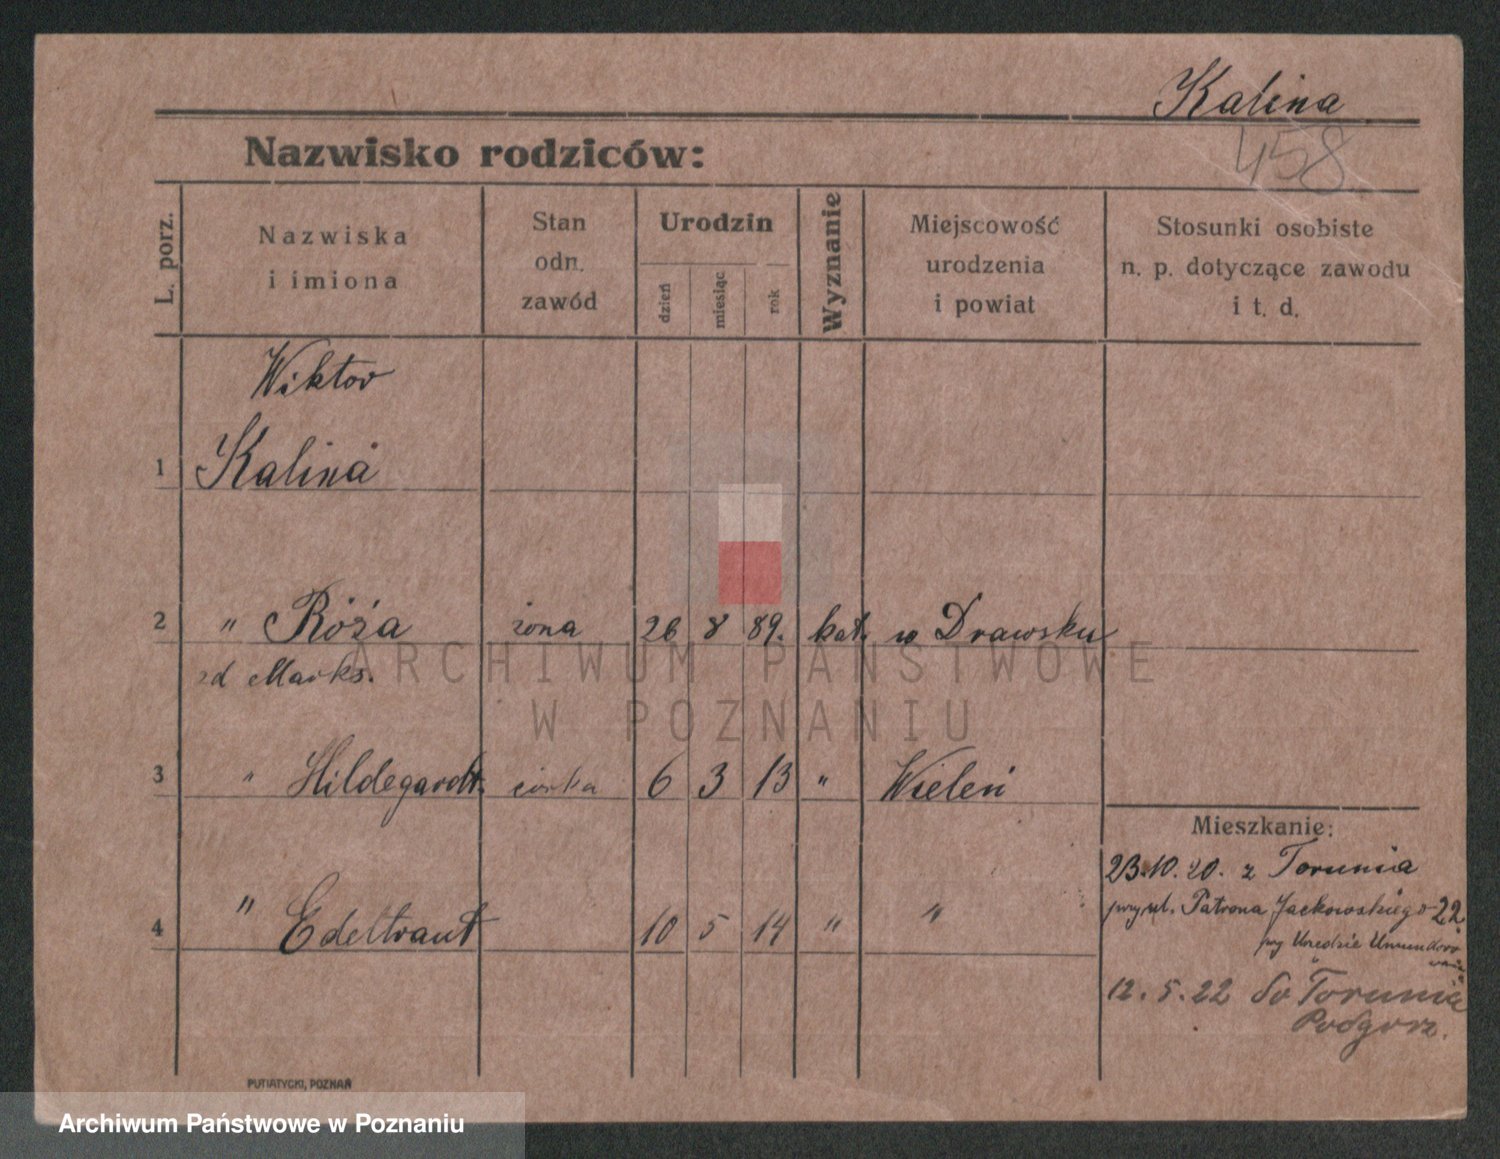 Kalina
458
Nazwisko rodziców:
L. porz.
Nazwiska
i imiona
Stan
odn.
zawód
Urodzin
dzień
miesiąc
rok
Wyznanie
Miejscowość
urodzenia
i powiat
Stosunki osobiste
n. p. dotyczące zawodu
i t. d.
Wiktor
1 Kalina
2 " Róża żona 26 8 89. kat. w Drawsku
zd Marks.
3 " Hildegardt. córka 6 3 13 " Wieleń
4 " Edeltraut 10 5 14 " "
Mieszkanie:
23.10.20. z Torunia
przy ul. Patrona Jackowskiego 22
przy Urzędzie Umundoro
12.5.22 do Torunia
Podgorz.
PUTIATYCKI, POZNAŃ
ARCHIWUM PAŃSTWOWE
W POZNANIU
Archiwum Państwowe w Poznaniu